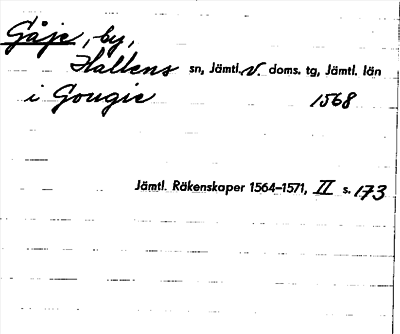 Gåje, by,
Hallens sn, Jämtl. v. doms. tg, Jämtl. län
i Gougie 1568
Jämtl. Räkenskaper 1564-1571, II s. 173